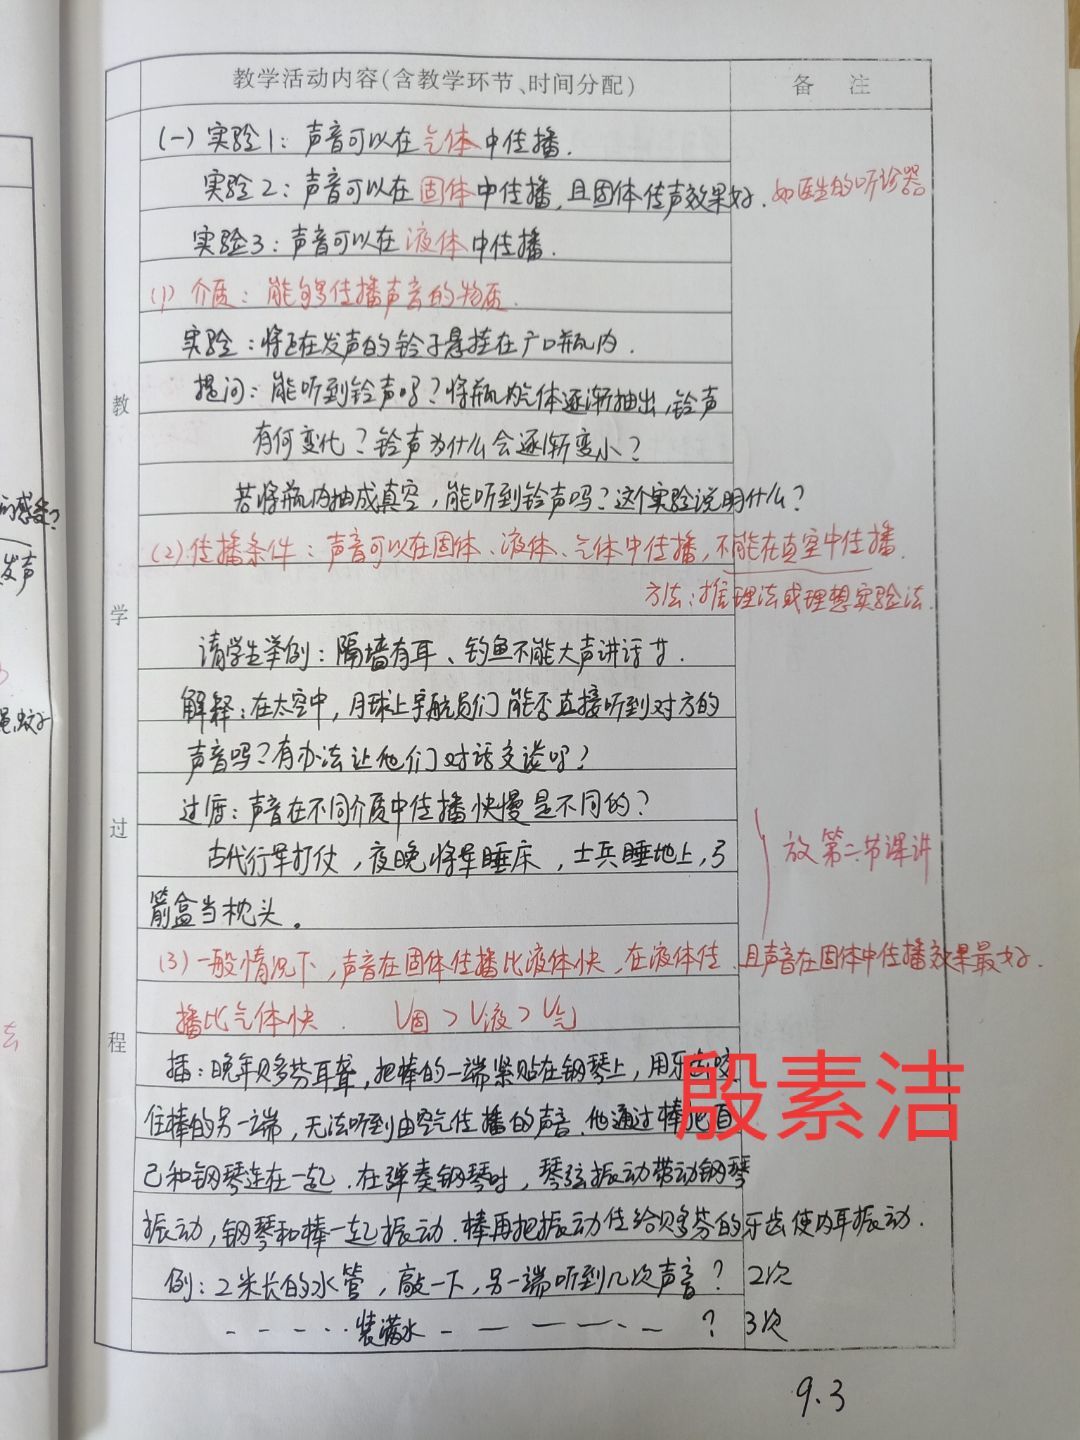 教学活动内容(含教学环节、时间分配)
备 注
(一) 实验1: 声音可以在气体中传播.
实验2: 声音可以在固体中传播, 且固体传声效果好. 如医生的听诊器
实验3: 声音可以在液体中传播.
(1) 介质: 能够传播声音的物质.
实验: 将正在发声的铃子悬挂在广口瓶内.
提问: 能听到铃声吗? 将瓶内气体逐渐抽出, 铃声
有何变化? 铃声为什么会逐渐变小?
若将瓶内抽成真空, 能听到铃声吗? 这个实验说明什么?
(2) 传播条件: 声音可以在固体、液体、气体中传播, 不能在真空中传播.
方法: 推理法或理想实验法.
请学生举例: 隔墙有耳、钓鱼不能大声讲话
解释: 在太空中, 月球上宇航员们能否直接听到对方的
声音吗? 有办法让他们对话交谈吗?
过度: 声音在不同介质中传播快慢是不同的?
古代行军打仗, 夜晚将军睡床, 士兵睡地上, 弓
箭盒当枕头。
放第二节课讲
(3) 一般情况下, 声音在固体传播比液体快, 在液体传
播比气体快. V固 > V液 > V气
且声音在固体中传播效果最好.
插: 晚年贝多芬耳聋, 把棒的一端紧贴在钢琴上, 用牙齿咬
住棒的另一端, 无法听到由空气传播的声音. 他通过棒把自
己和钢琴连在一起. 在弹奏钢琴时, 琴弦振动带动钢琴
振动, 钢琴和棒一起振动. 棒再把振动传给贝多芬的牙齿使内耳振动.
例: 2米长的水管, 敲一下, 另一端听到几次声音? 2次
- - - - · · 装满水 - — — — · - ? 3次
教
学
过
程
殷素洁
9.3
的感受?
发声
蚊子